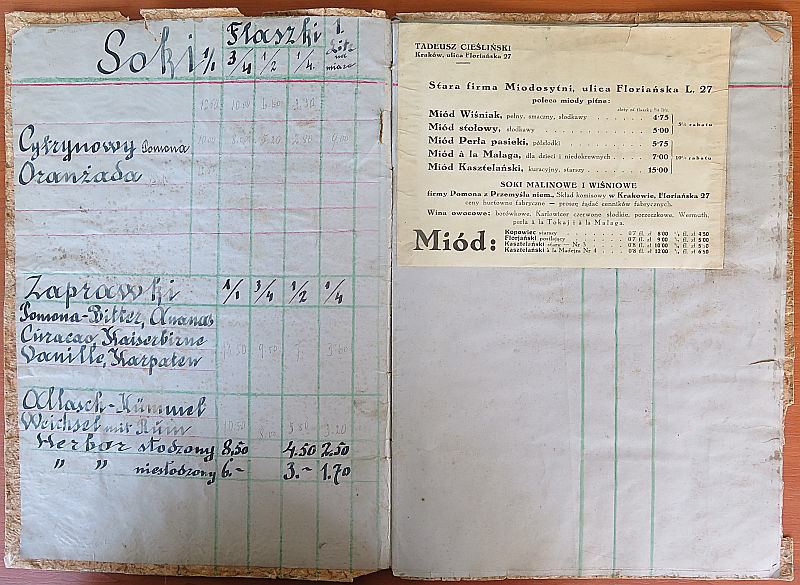 Soki 1/1
Flaszki
3/4 1/2 1/4
1 Litr na miarę
Cytrynowy Pomona
Oranżada
Zaprawki 1/1 3/4 1/2 1/4
Pomona-Bitter, Ananas
Curacao, Kaiserbirne
Vanille, Karpaten
9.50
Allasch-Kümmel
Weichsel mit Rum
Herbor słodzony 8.50 4.50 2.50
" " niesłodzony 6.- 3.- 1.70
TADEUSZ CIEŚLIŃSKI
Kraków, ulica Floriańska 27
Stara firma Miodosytni, ulica Floriańska L. 27
poleca miody pitne:
Miód Wiśniak, pełny, smaczny, słodkawy 4·75
Miód stołowy, słodkawy 5·00
5% rabatu
Miód Perła pasieki, półsłodki 5·75
Miód à la Malaga, dla dzieci i niedokrewnych 7·00
10% rabatu
Miód Kasztelański, kuracyjny, starszy 15·00
SOKI MALINOWE I WIŚNIOWE
firmy Pomona z Przemyśla niem., Skład komisowy w Krakowie, Floriańska 27
ceny hurtowno fabryczne — proszę żądać cenników fabrycznych.
Wina owocowe: borówkowe, Karlowicer czerwone słodkie, porzeczkowe, Wermuth,
perła à la Tokaj i à la Malaga.
Miód:
Kopowiec starszy 0·7 fl. zł 8·00 ½ fl. zł 4·50
Florjański 0·7 fl. zł 9·00 ½ fl. zł 5·00
Kasztelański stary — Nr 3 0·8 fl. zł 10·00
Kasztelański à la Madejra Nr 4 0·8 fl. zł 12·00 ½ fl. zł 6·50